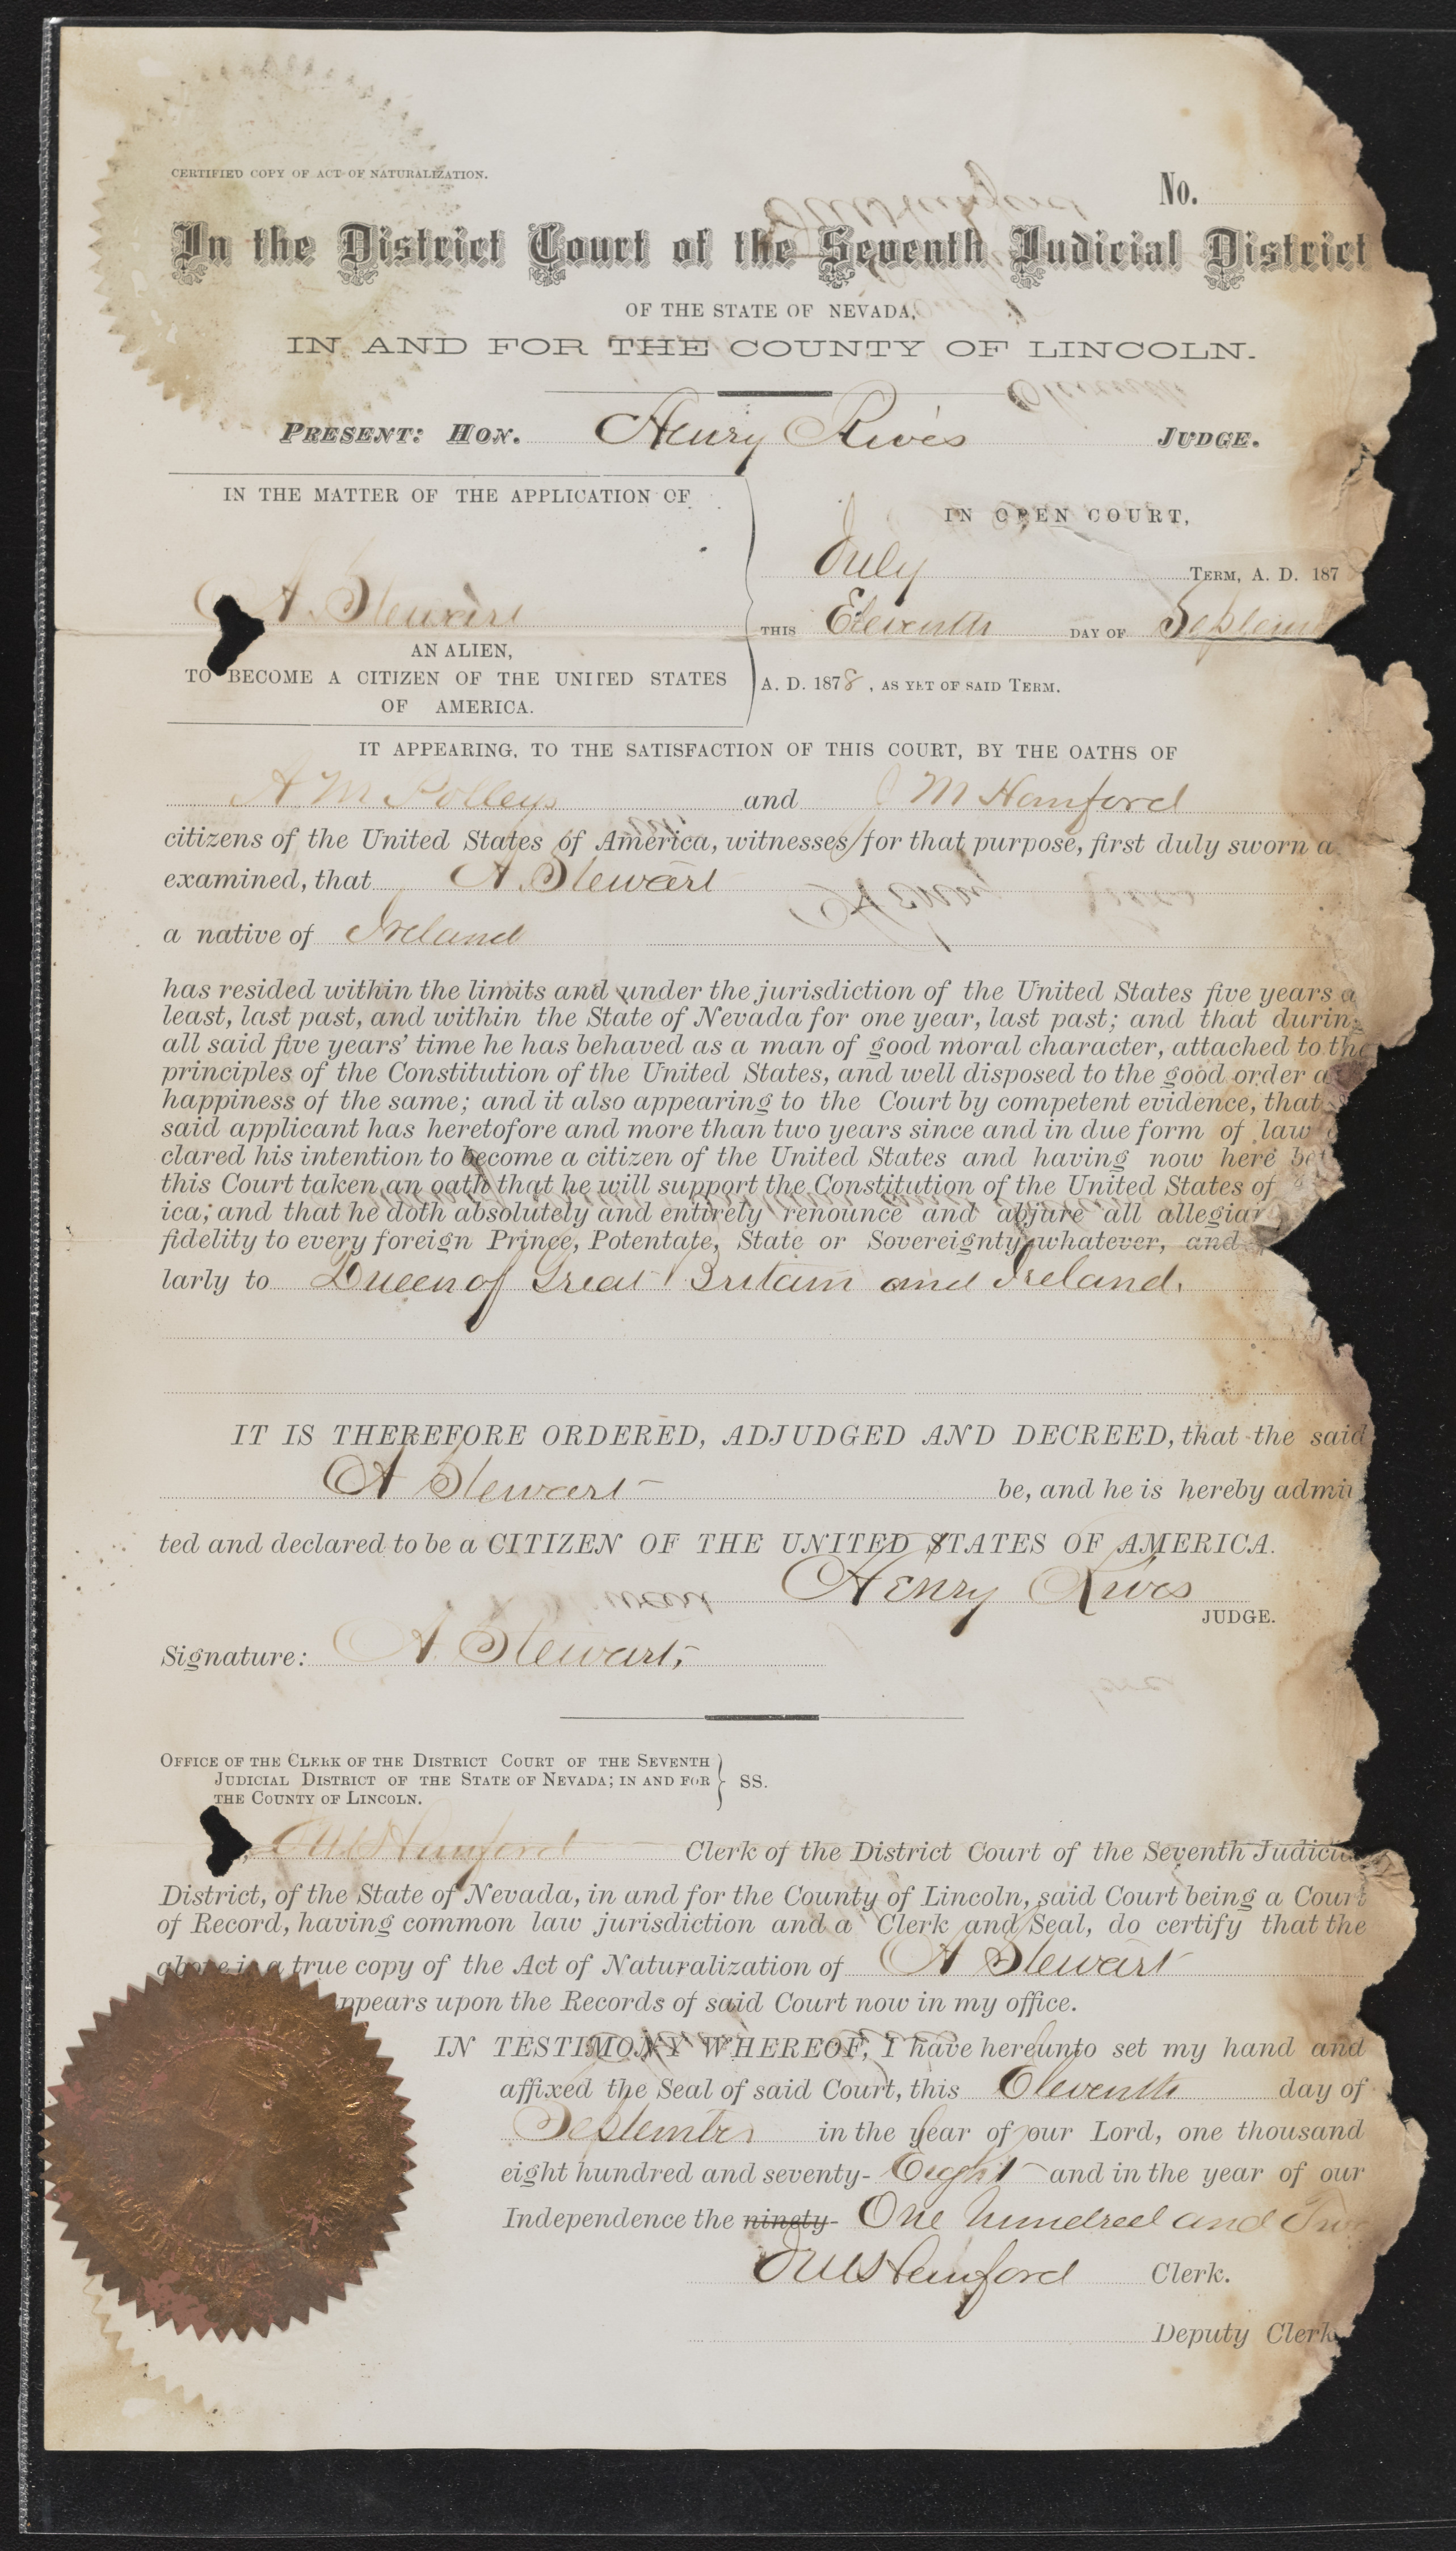 CERTIFIED COPY OF ACT OF NATURALIZATION.
No.
In the District Court of the Seventh Judicial District
OF THE STATE OF NEVADA,
IN AND FOR THE COUNTY OF LINCOLN.
PRESENT: HON. Henry Rives JUDGE.
IN THE MATTER OF THE APPLICATION OF
A. Stewart
AN ALIEN,
TO BECOME A CITIZEN OF THE UNITED STATES
OF AMERICA.
IN OPEN COURT,
July TERM, A. D. 187
THIS Eleventh DAY OF Septem
A. D. 1878, AS YET OF SAID TERM.
IT APPEARING, TO THE SATISFACTION OF THIS COURT, BY THE OATHS OF
A M Polleys and J M Hanford
citizens of the United States of America, witnesses for that purpose, first duly sworn a
examined, that A. Stewart
a native of Ireland
has resided within the limits and under the jurisdiction of the United States five years a
least, last past, and within the State of Nevada for one year, last past; and that durin
all said five years' time he has behaved as a man of good moral character, attached to the
principles of the Constitution of the United States, and well disposed to the good order a
happiness of the same; and it also appearing to the Court by competent evidence, that
said applicant has heretofore and more than two years since and in due form of law
clared his intention to become a citizen of the United States and having now here bef
this Court taken an oath that he will support the Constitution of the United States of
ica; and that he doth absolutely and entirely renounce and abjure all allegian
fidelity to every foreign Prince, Potentate, State or Sovereignty whatever, and
larly to Queen of Great Britain and Ireland.
IT IS THEREFORE ORDERED, ADJUDGED AND DECREED, that the said
A Stewart be, and he is hereby admit
ted and declared to be a CITIZEN OF THE UNITED STATES OF AMERICA.
Henry Rives
JUDGE.
Signature: A. Stewart,
OFFICE OF THE CLERK OF THE DISTRICT COURT OF THE SEVENTH
JUDICIAL DISTRICT OF THE STATE OF NEVADA; IN AND FOR SS.
THE COUNTY OF LINCOLN.
J M Hanford Clerk of the District Court of the Seventh Judicia
District, of the State of Nevada, in and for the County of Lincoln, said Court being a Court
of Record, having common law jurisdiction and a Clerk and Seal, do certify that the
above is a true copy of the Act of Naturalization of A Stewart
appears upon the Records of said Court now in my office.
IN TESTIMONY WHEREOF, I have hereunto set my hand and
affixed the Seal of said Court, this Eleventh day of
September in the year of our Lord, one thousand
eight hundred and seventy- Eight and in the year of our
Independence the ninety- One hundred and Two
J M Hanford Clerk.
Deputy Clerk